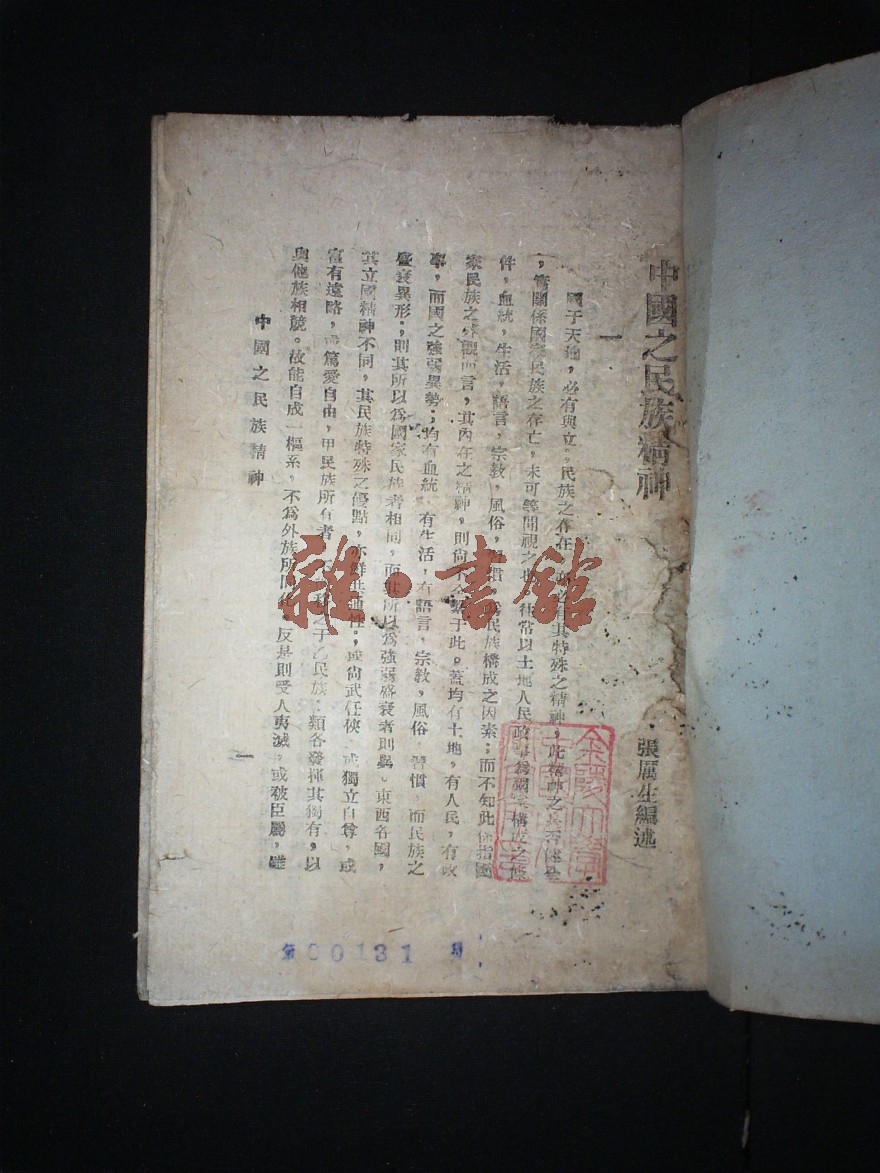 中國之民族精神
張厲生編述
一
國于天地，必有與立。民族之存在，必有其特殊之精神，此精神之具否健全
，管關係國家民族之存亡，未可等閒視之也。往常以土地人民政事為國家構成之條
件，血統，生活，語言，宗教，風俗，習慣，為民族構成之因素；而不知此僅指國
家民族之外觀而言，其內在之精神，則尚不全繫于此。蓋均有土地，有人民，有政
事，而國之強弱異勢；均有血統，有生活，有語言，宗教，風俗，習慣，而民族之
盛衰異形；則其所以為國家民族者相同，而其所以為強弱盛衰者則異。東西各國，
其立國精神不同，其民族特殊之優點，亦鮮共通性；或尚武任俠，或獨立自尊，或
富有遠略，或篤愛自由，甲民族所有者，之于乙民族：類各發揮其獨有，以
與他族相競。故能自成一樞系，不為外族所同化，反是則受人夷滅，或被臣屬，雖
中國之民族精神
一
雜·書館
金陵大學
00131